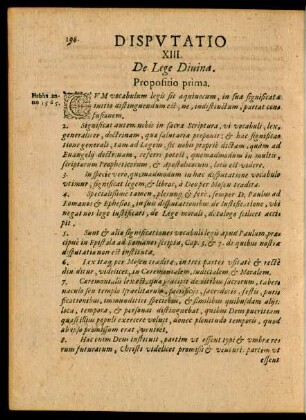 198.
DISPVTATIO
XIII.
De Lege Diuina.
Propositio prima.
Habita an-
no 1585.
CVM vocabulum legis sit aequiuocum, in sua significatione
distinguendum est, ne, indistinctum, pariat con-
fusionem.
2. Significat autem nobis in sacra Scriptura, vi vocabuli, lex,
generaliter, doctrinam, qua salutaria
generali, tam ad Legem, sic nobis propriè dictam, quàm ad
Euangelij doctrinam,
scripturam Propheticam & Apostolicam,
3. In specie verò, quemadmodum in hac disputatione vocabulo
vtimur, significat legem, & libros, à Deo per Mosen traditos.
4. Specialissimè tamen, plerunq; & ferè, semper D. Paulus ad
Romanos & Ephesios, in suis disputationibus de Iustificatione, vbi
negat nos lege iustificari, de Lege morali, decalogo scilicet acci-
pit.
5. Sunt & aliae significationes vocabuli legis apud Paulum, prae-
cipuè in Epistola ad Romanos scripta, Cap. 5. & 7. de quibus nostra
disputatio non est instituta.
6. Lex itaq; per Mosen tradita, in tres partes vsitatè & rectè
diuiditur, videlicet, in Ceremonialem, iudicialem, & Moralem.
7. Ceremonialis lex est,
naculo seu templo Israëlitarum, sacrificijs, sacerdotio, festis, puri-
ficationibus, immunditiei speciebus, & similibus quibusdam alijs,
loca, tempora, & personas distinguebat, quibus Deum
quasi
ab ipso promissum erat, veniret.
8. Hac enim Deus instituit, partim vt essent typi & vmbrae re-
rum futurarum, Christi videlicet promissi & venturi: partim vt
essent